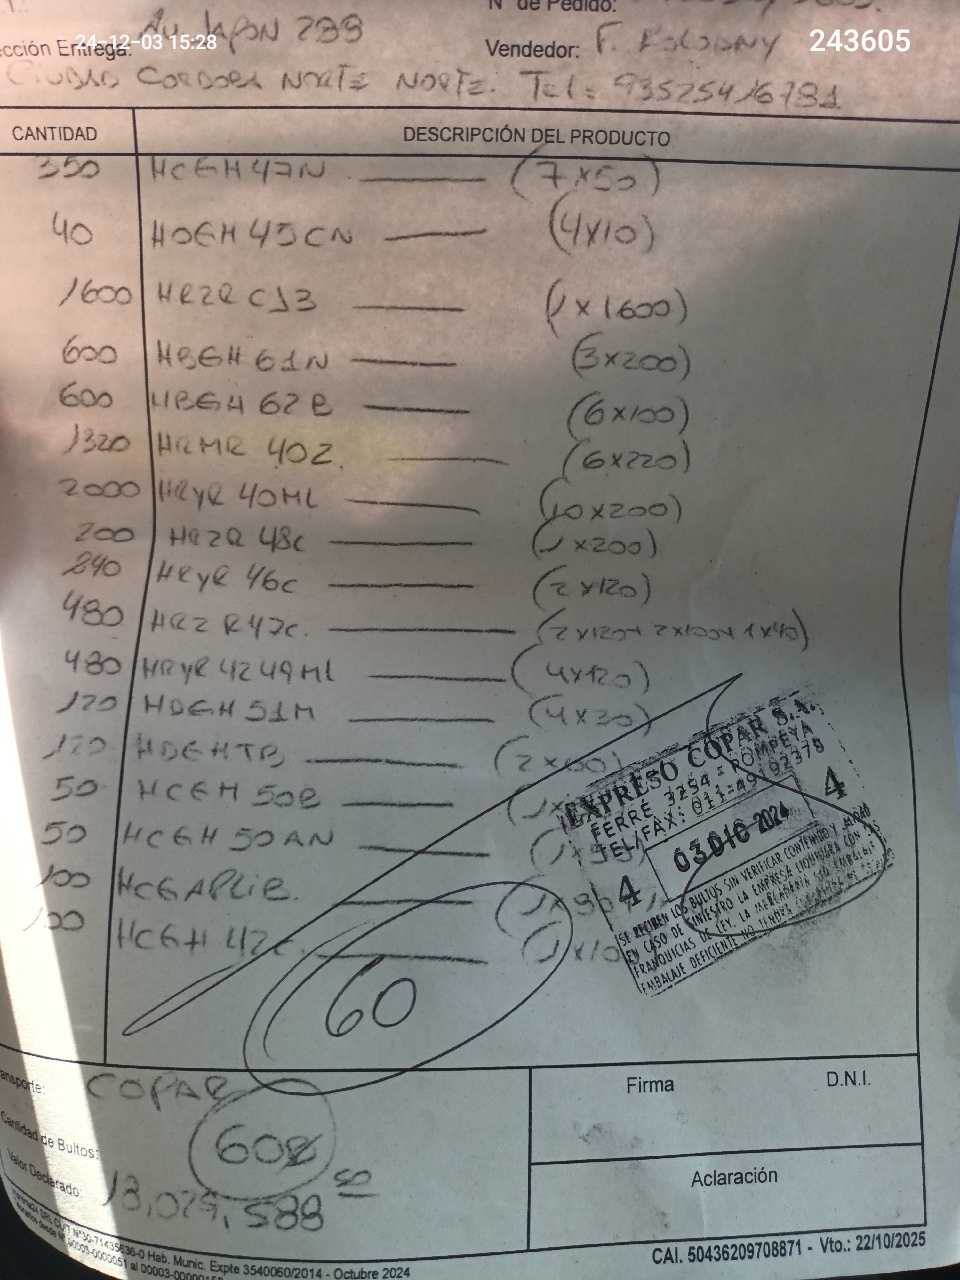 N° de Pedido:
24-12-03 15:28
ección Entrega: 299
Vendedor: F.
243605
CORDOBA NORTE NORTE. Tel: 93525416781
CANTIDAD DESCRIPCIÓN DEL PRODUCTO
350 HCGH47N (7x50)
40 HOGH45CN (4x10)
1600 HRZR C13 (1x1600)
600 HBGH 61N (3x200)
600 HBGH 62B (6x100)
1320 HRMR 40Z. (6x220)
2000 HRYR 40ML (10x200)
200 HRZR 48C (1x200)
240 HRYR 46C (2x120)
480 HRZR47C. (2x120+2x100+1x40)
480 HRYR4249ML (4x120)
120 HDGH 51M (4x30)
120 HDGHTB (2x60)
50 HCGH 50B (1x
50 HCGH 50AN (1x50)
100 HCGAPLIB.
100 HCGH 42C. (1x10
EXPRESO COPAR S.A.
FERRE 3294 - POMPEYA
TEL/FAX: 011-4919-2378
4 03 DIC 2024 4
SE RECIBEN LOS BULTOS SIN VERIFICAR CONTENIDO Y
EN CASO DE SINIESTRO LA EMPRESA LIQUIDARA CON
FRANQUICIAS DE LEY. LA MERCADERIA SIN EMBALAJE
EMBALAJE DEFICIENTE NO TENDRA
60
ansporte: COPAR
Cantidad de Bultos: 60
Valor Declarado: 13,029,588
Firma D.N.I.
Aclaración
SRL CUIT N°30-71435636-0 Hab. Munic. Expte 3540060/2014 - Octubre 2024
CAI. 50436209708871 - Vto.: 22/10/2025